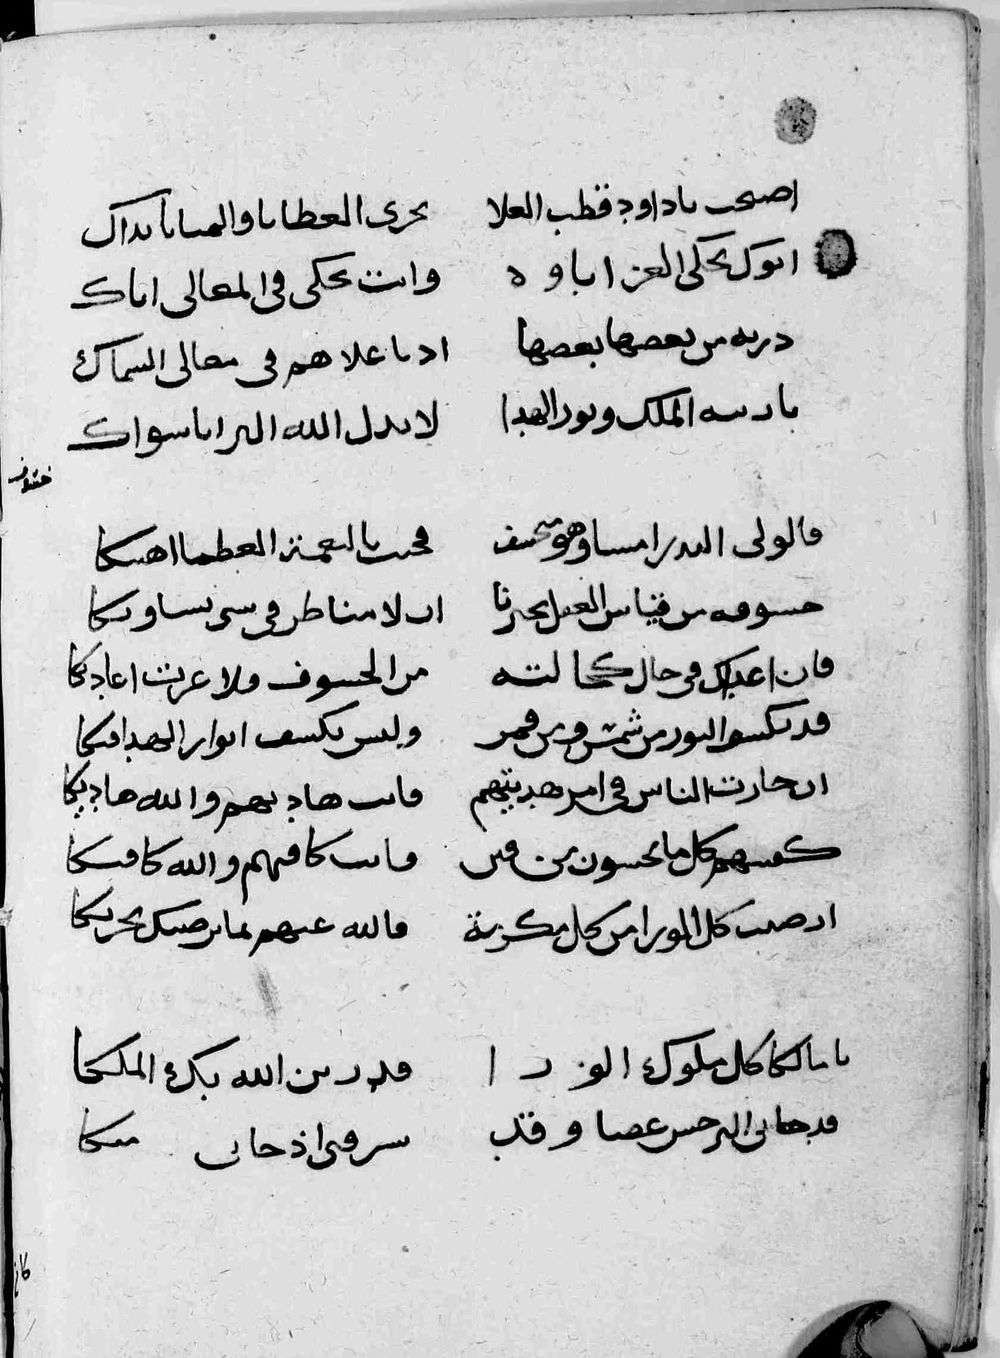 اصبحت ياداود قطب العلا يجرى العطايا والمنايا يداك
ابوك يحكى العز اباوه وانت تحكى فى المعالى اباك
درية من بعضها بعضها ادناعلاهم فى معالى السماك
يازينة الملك ونور الهدا لايدل الله البرايا سواك
قالولى البدر امسا وهو منخسف فجيت بالنعمة العظما اهنيكا
خسوفه من قياس العقل يخبرنا ان لا مناظر فى شى يساويكا
فان اعديك فى حال كحالته من الخسوف فلا عزت اعاديكا
قد يكسف النور من شمس ومن قمر وليس يكسف انوار الهدا فيكا
ان حارت الناس فى امر هديتهم فانت هاديهم والله هاديكا
كفيتهم كل ما يخشون من فتن فانت كافيهم والله كافيكا
ارضيت كل الورا من كل مكرمة فالله عنهم بما يرضيك يجزيكا
يا مالكا كل ملوك الورا قلد من الله بك الملكا
قد جانى النرجس عصا وقد سرفنى اذ جانى منكا